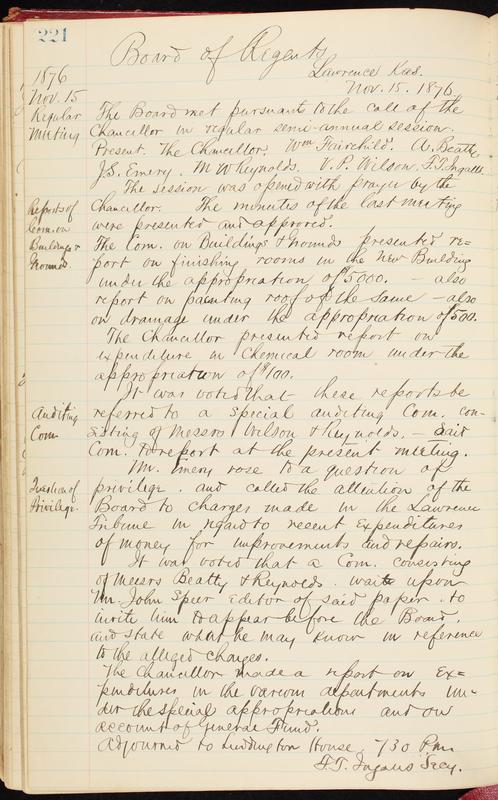 221
Board of Regents
Lawrence Kas.
Nov. 15. 1876.
1876
Nov. 15
Regular
Meeting
The Board met pursuant to the call of the
Chancellor in regular semi-annual session.
Present. The Chancellor. Wm Fairchild. A. Beatty
J.S. Emery. M W Reynolds. V. P. Wilson. F.T. Ingalls.
The session was opened with prayer by the
Reports of
Com. on
Buildings &
Grounds.
Chancellor. The minutes of the last meeting
were presented and approved.
The Com. on Buildings & Grounds presented re=
port on finishing rooms in the New Building
under the appropriation of $5000. — also
report on painting roof of the same — also
on drainage under the appropriation of $500.
The Chancellor presented report on
expenditure in Chemical room under the
appropriation of $100.
It was voted that these reports be
Auditing
Com.
referred to a special auditing Com. con-
sisting of Messrs Wilson & Reynolds. — Said
Com. to report at the present meeting.
Mr. Emery rose to a question of
Question of
Privilege.
privilege. and called the attention of the
Board to charges made in the Lawrence
Tribune in regard to recent expenditures
of money for improvements and repairs.
It was voted that a Com. consisting
of Messrs Beatty & Reynolds. wait upon
Mr. John Speer editor of said paper. to
invite him to appear before the Board.
and state what he may know in reference
to the alleged charges.
The Chancellor made a report on Ex=
penditures in the various departments un-
der the special appropriations and on
account of General Fund.
Adjourned to Luddington House 7 30 P.m.
F.T. Ingalls Secy.